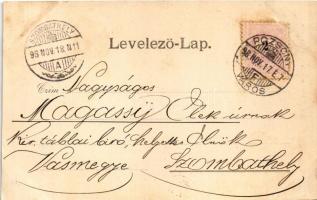 SZOMBATHELY
98 NOV. 18. N11
A
Levelező-Lap.
POZSONY
98 NOV. 17. E
VÁROS
Czim Nagyságos
Magassij Elek úrnak
Kir. táblai biró, helyettes Elnök
Vasmegye Szombathely